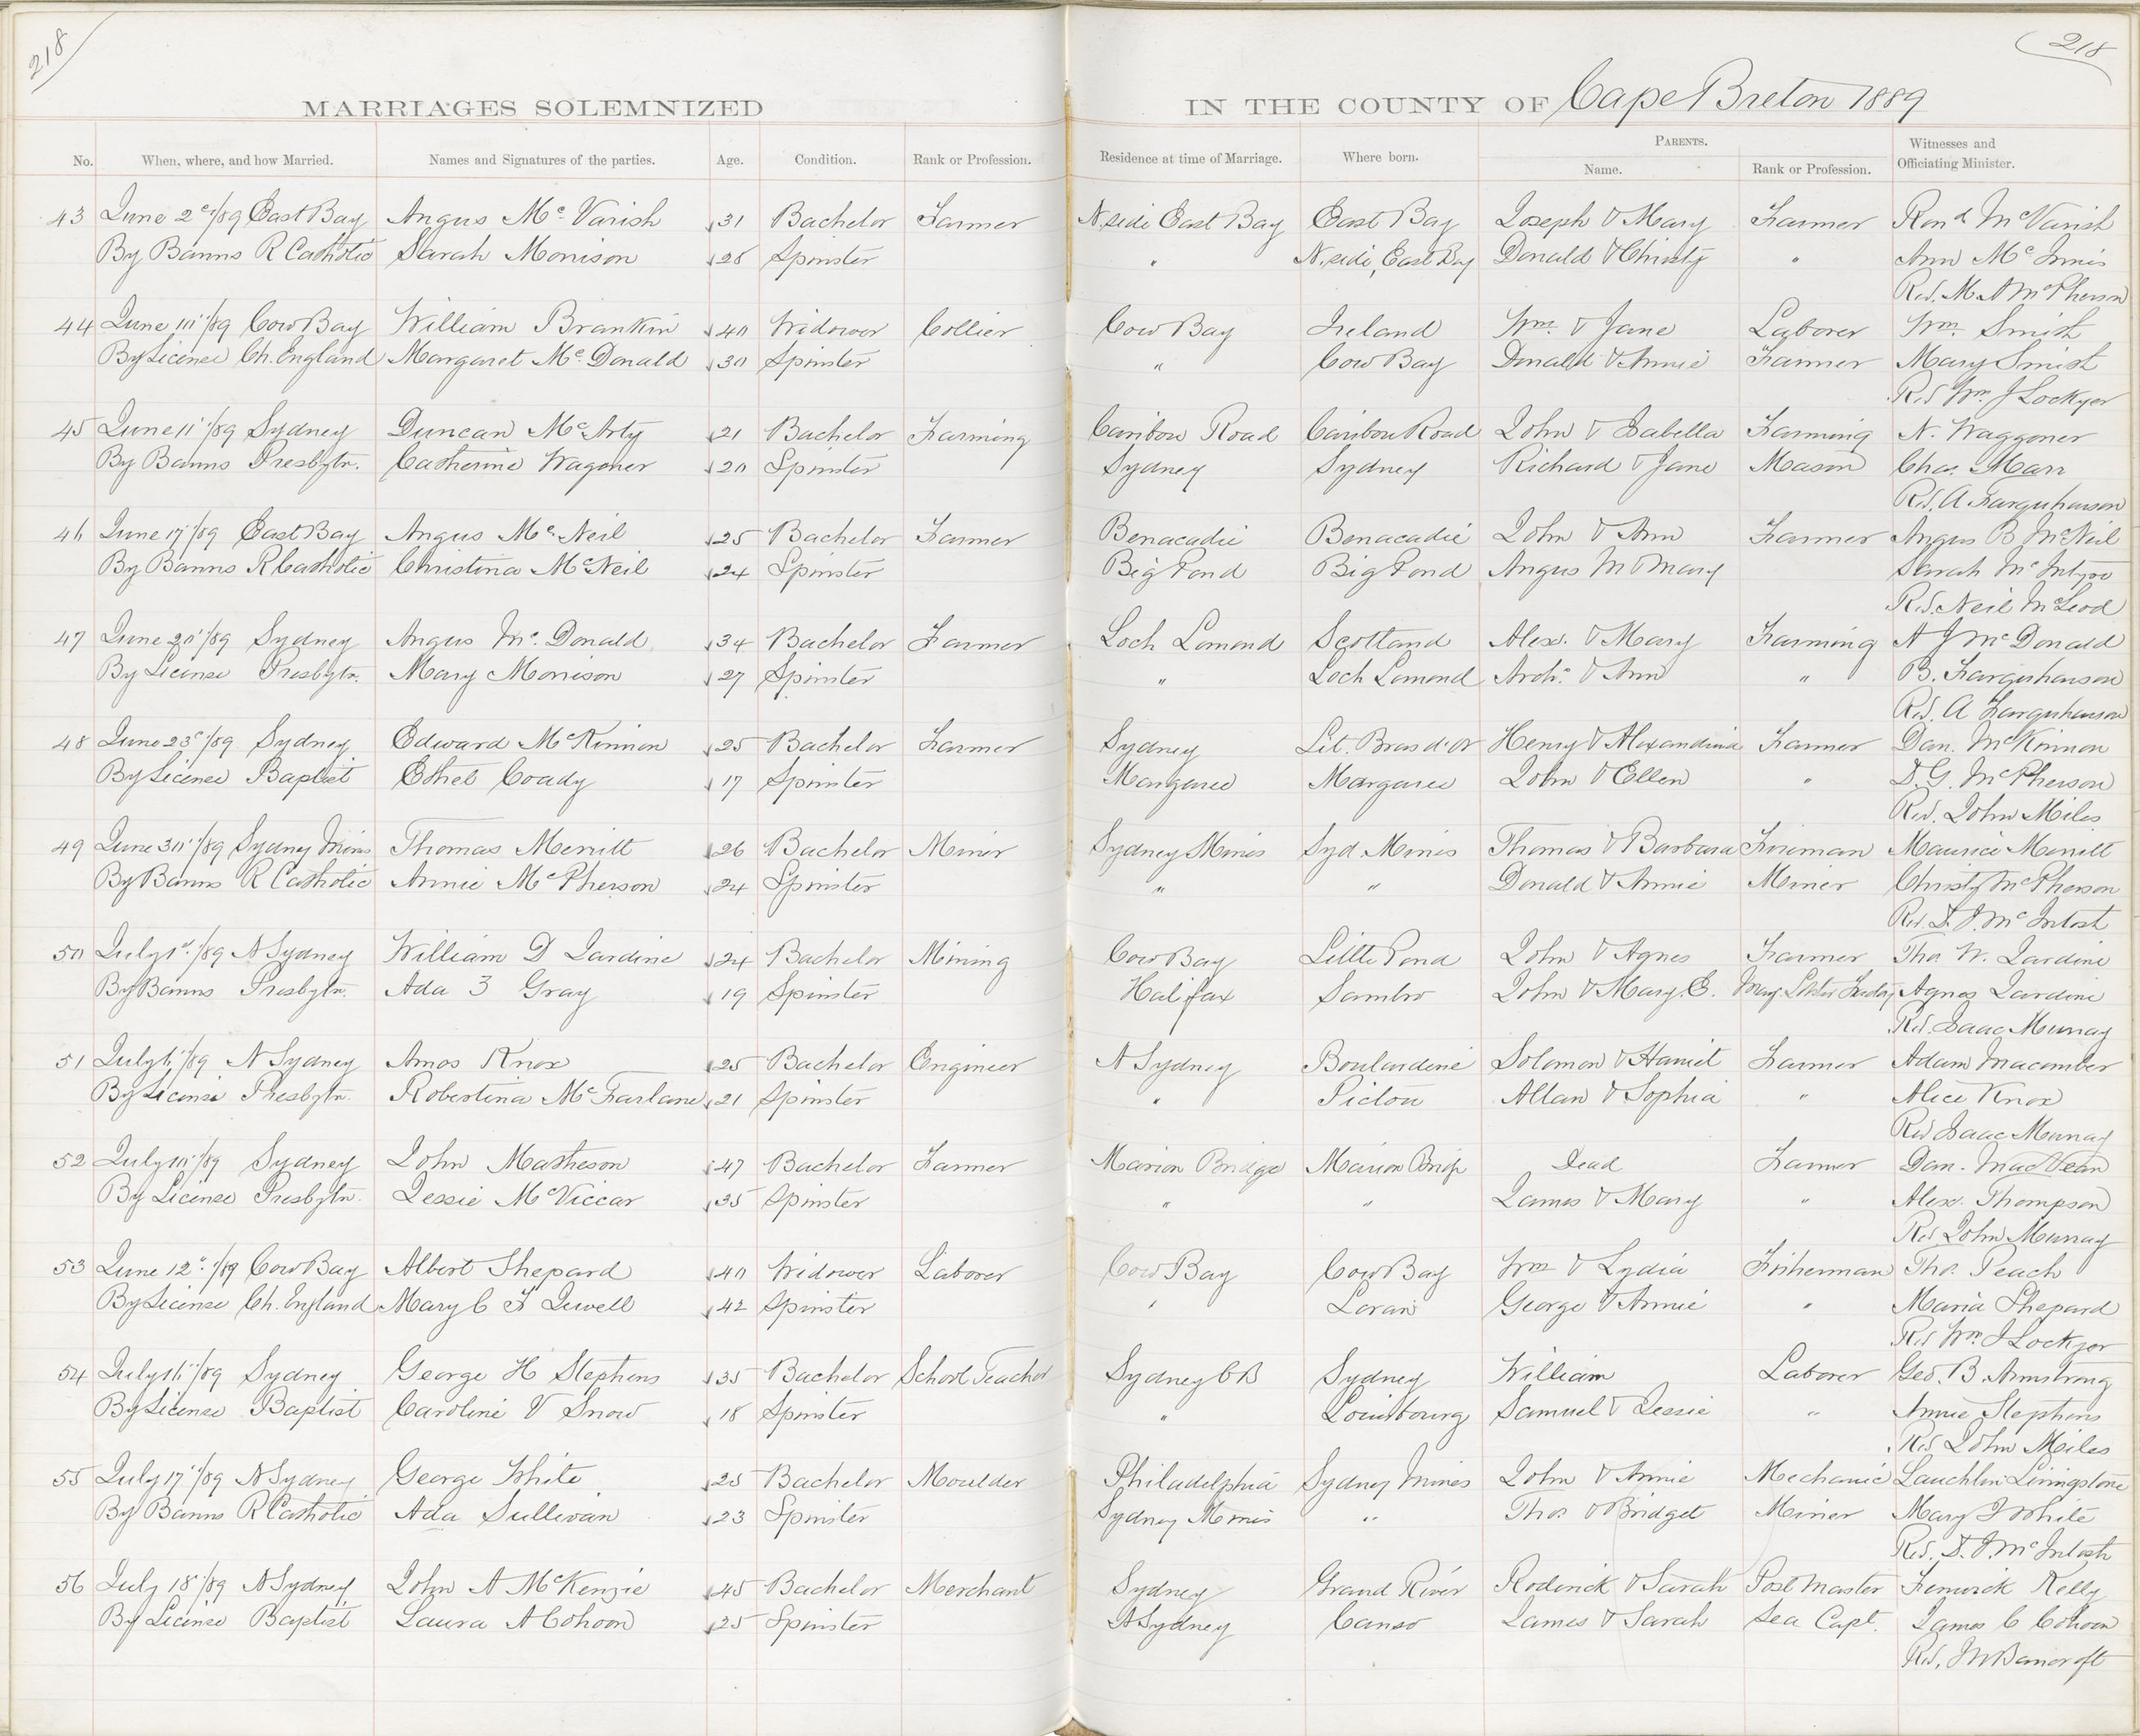 218
218
MARRIAGES SOLEMNIZED IN THE COUNTY OF Cape Breton 1889
No. When, where, and how Married. Names and Signatures of the parties. Age. Condition. Rank or Profession. Residence at time of Marriage. Where born. PARENTS. Name. Rank or Profession. Witnesses and Officiating Minister.
43 June 2d/89 East Bay Angus Mc Varish 31 Bachelor Farmer N. side East Bay East Bay Joseph & Mary Farmer Rond McVarish
By Banns R Catholic Sarah Morrison 28 Spinster " N. side, East Bay Donald & Christy " Ann Mc Innis
Rev. M A McPherson
44 June 10/89 Cow Bay William Brankin 40 Widower Collier Cow Bay Ireland Wm & Jane Laborer Wm Smith
By License Ch. England Margaret Mc Donald 30 Spinster " Cow Bay Donald & Annie Farmer Mary Smith
Rev Wm J Lockyer
45 June 11/89 Sydney Duncan Mc Arty 21 Bachelor Farming Caribou Road Caribou Road John & Isabella Farming N. Waggoner
By Banns Presbytn. Catherine Wagoner 20 Spinster Sydney Sydney Richard & Jane Mason Chas. Marr
Rev. A Farquharson
46 June 17/89 East Bay Angus Mc Neil 25 Bachelor Farmer Benacadie Benacadie John & Ann Farmer Angus B McNeil
By Banns R Catholic Christina McNeil 24 Spinster Big Pond Big Pond Angus M & Mary Sarah McIntyre
Rev. Neil McLeod
47 June 20/89 Sydney Angus Mc. Donald 34 Bachelor Farmer Loch Lomond Scotland Alex. & Mary Farming A J McDonald
By License Presbytn. Mary Morrison 27 Spinster " Loch Lomond Archd. & Ann " B. Farquharson
Rev. A Farquharson
48 June 23d/89 Sydney Edward McKinnon 25 Bachelor Farmer Sydney Lit. Bras d'Or Henry & Alexandrina Farmer Dan. McKinnon
By License Baptist Ethel Coady 17 Spinster Margaree Margaree John & Ellen " D. G. McPherson
Rev. John Miles
49 June 30/89 Sydney Mines Thomas Merritt 26 Bachelor Miner Sydney Mines Syd. Mines Thomas & Barbara Fireman Maurice Merritt
By Banns R Catholic Annie McPherson 24 Spinster " " Donald & Annie Miner Christy McPherson
Rev. D. J. McIntosh
50 July 1st/89 N Sydney William D Jardine 24 Bachelor Mining Cow Bay Little Pond John & Agnes Farmer Thos W. Jardine
By Banns Presbytn. Ada 3 Gray 19 Spinster Halifax Sambro John & Mary E. Agnes Jardine
Rev. Isaac Murray
51 July 6/89 N Sydney Amos Knox 25 Bachelor Engineer N Sydney Boulardrie Solomon & Harriet Farmer Adam Macomber
By License Presbytn. Robertina McFarlane 21 Spinster " Pictou Allan & Sophia " Alice Knox
Rev Isaac Murray
52 July 10/89 Sydney John Matheson 47 Bachelor Farmer Marion Bridge Marion Bridge Dead Farmer Dan. MacVean
By License Presbytn. Jessie McViccar 35 Spinster " " James & Mary " Alex. Thompson
Rev. John Murray
53 June 12/89 Cow Bay Albert Shepard 40 Widower Laborer Cow Bay Cow Bay Wm & Lydia Fisherman Thos. Peach
By License Ch. England Mary C F Jewell 42 Spinster " Loran George & Annie " Maria Shepard
Rev Wm J Lockyer
54 July 16/89 Sydney George H Stephens 35 Bachelor School Teacher Sydney C B Sydney William Laborer Geo. B. Armstrong
By License Baptist Caroline V Snow 18 Spinster " Louisbourg Samuel & Jessie " Annie Stephens
Rev. John Miles
55 July 17/89 N Sydney George White 25 Bachelor Moulder Philadelphia Sydney Mines John & Annie Mechanic Lauchlin Livingstone
By Banns R Catholic Ada Sullivan 23 Spinster Sydney Mines " Thos. & Bridget Miner Mary J White
Rev. D. J. McIntosh
56 July 18/89 N Sydney John A McKenzie 45 Bachelor Merchant Sydney Grand River Roderick & Sarah Post Master Fenwick Kelly
By License Baptist Laura A Cohoon 25 Spinster N Sydney Canso James & Sarah Sea Capt. James C Cohoon
Rev. J W Bancroft